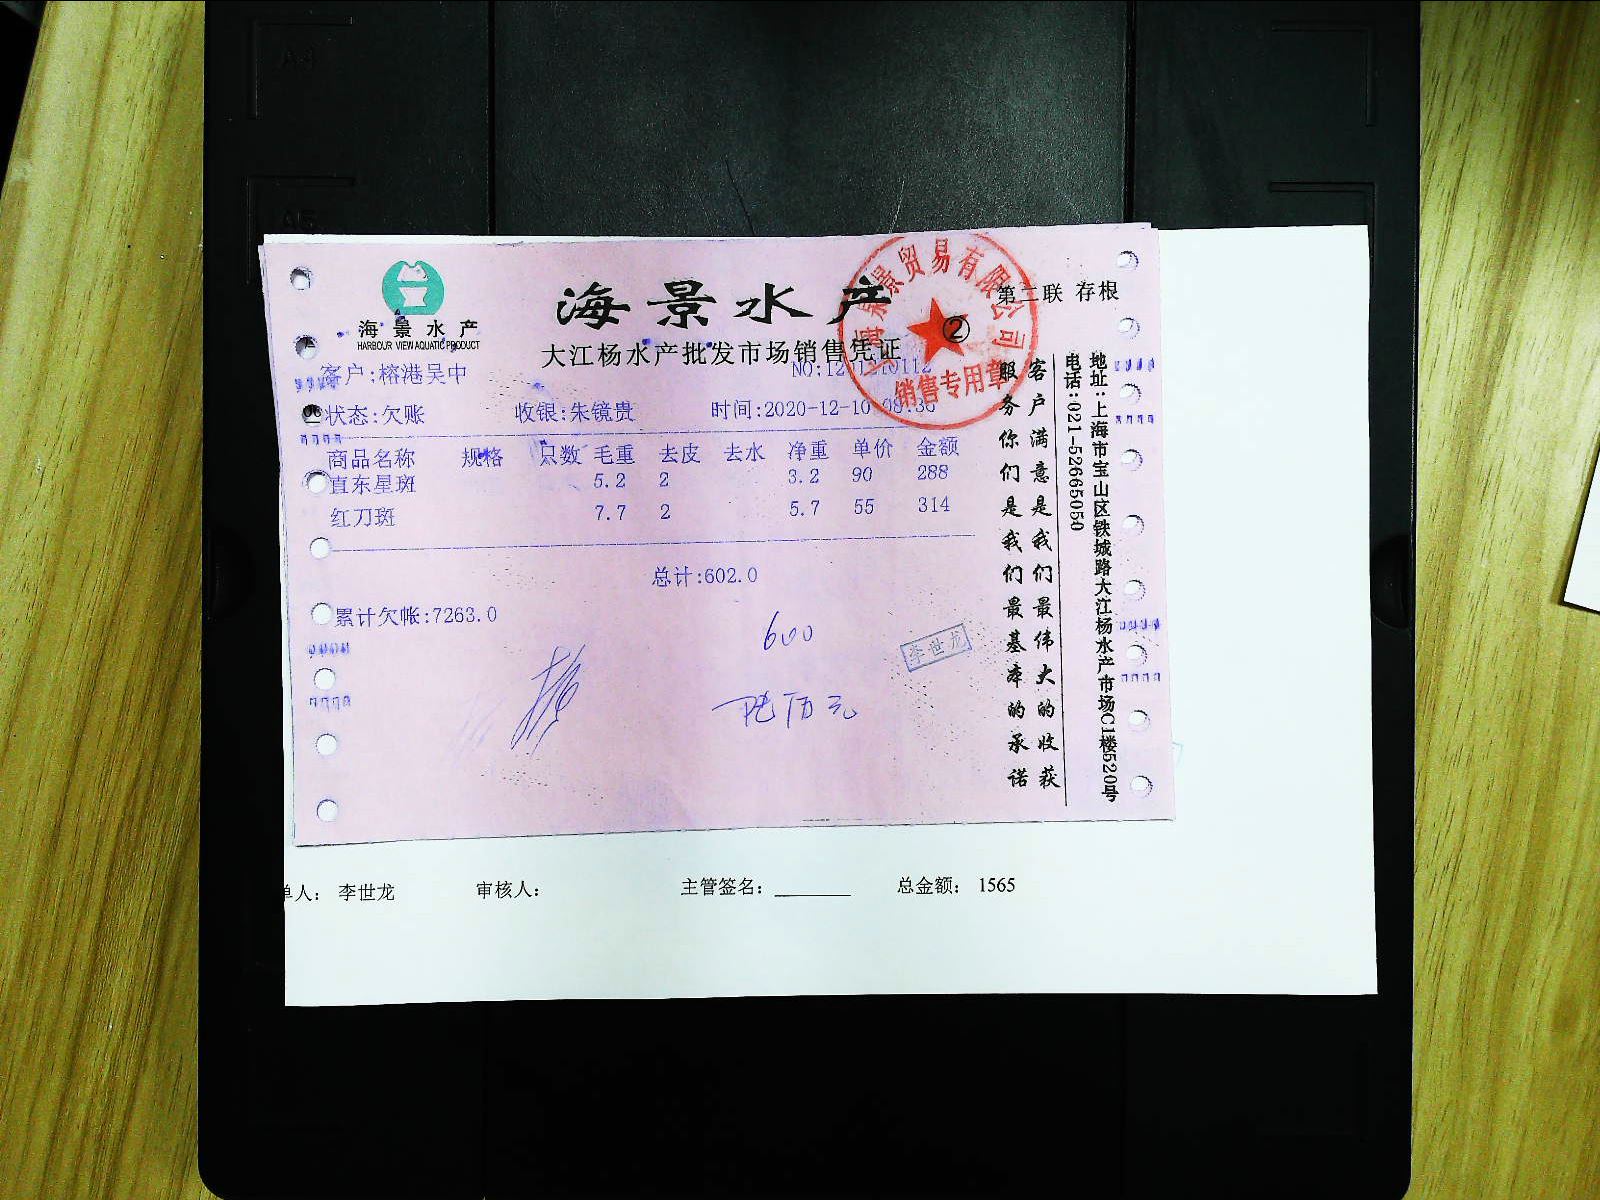 海景水产
HARBOUR VIEW AQUATIC PRODUCT
海景水产
大江杨水产批发市场销售凭证
第二联 存根
②
景贸易有限公司
销售专用章
客户:榕港吴中
状态:欠账 收银:朱镜贵 时间:2020-12-10 08:36
商品名称 规格 只数 毛重 去皮 去水 净重 单价 金额
直东星斑 5.2 2 3.2 90 288
红刀斑 7.7 2 5.7 55 314
总计:602.0
累计欠帐:7263.0
600
陆佰元
李世龙
客户满意是我们最伟大的收获
服务你们是我们最基本的承诺
地址:上海市宝山区铁城路大江杨水产市场C1楼520号
电话:021-52665050
单人: 李世龙 审核人: 主管签名: 总金额: 1565